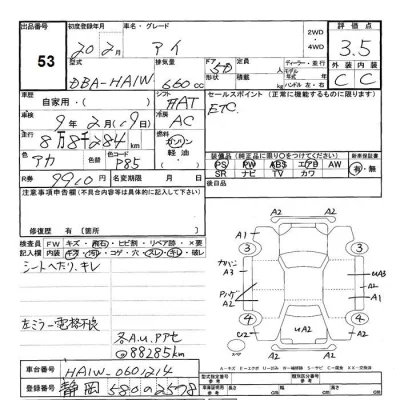 出品番号 53
初度登録年月 20年2月
車名・グレード アイ
2WD・4WD
評価点 3.5
型式 DBA-HA1W
排気量 660cc
ドア 5D
定員
形状
積載 kg
ディーラー・並行
モデル年式 年
ハンドル 左・右
外装 C
内装 C
車歴 自家用・( )
シフト FAT
車検 9年2月(19日)
冷房 AC
走行 8万8千284km
燃料 ガソリン 軽油
色 アカ
色No. P85
R券 9910円
名変期限 月 日
セールスポイント (正常に機能するものに限ります)
ETC
装備品 (純正品に限り○をつけてください)
PS PW ABS エアB AW
SR ナビ TV カワ
新車保証書 有・無
後日品
注意事項申告欄(不具合内容等は具体的に記入して下さい)
修復歴 有(箇所 )
検査員記入欄
FW キズ・飛石・ヒビ割・リペア跡・×要
内装 キズ・汚レ・コゲ・穴・スレ・キレ・破レ
シートヘたり、キレ
左ミラー電格不良
各A.U.Pアセ
@88285km
A2
A1
A2
3
3
カバン A3
Pハゲ A2
UA3
A2
A1
4
4
A2
UA2
A2
A2
A・キズ E・エクボ U・凹み W・補修跡 S・サビ C・腐食 XX・交換済
車台番号 HA1W-0601214
登録番号 静岡 580 の 2578